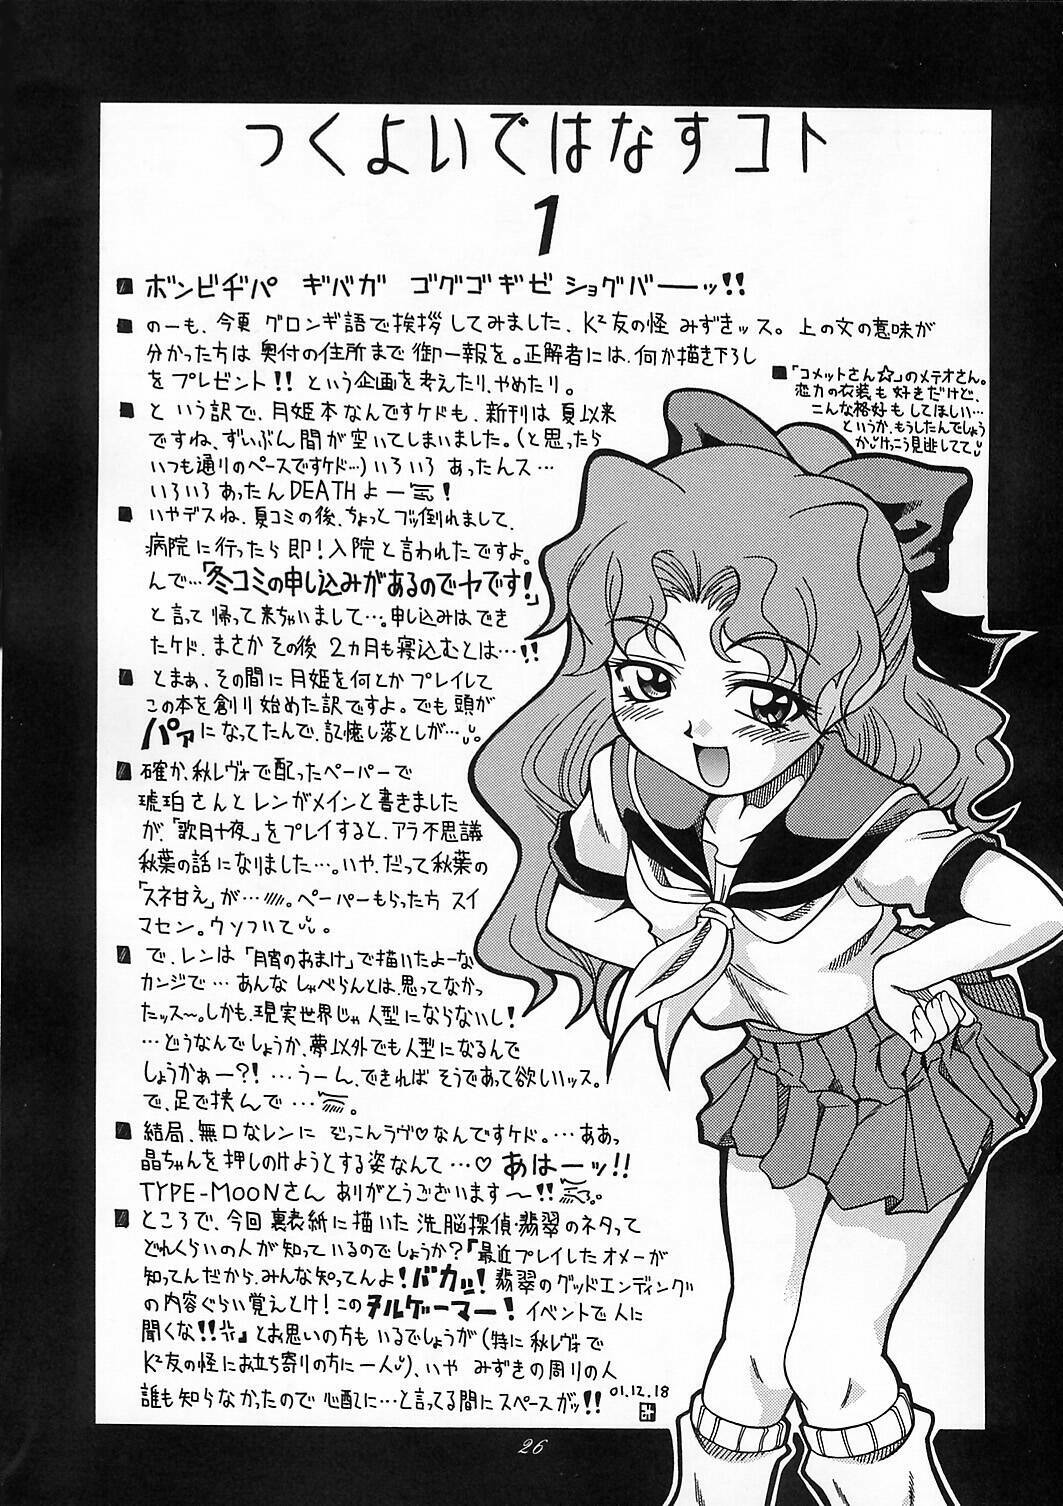 つくよいではなすコト
1
■ボンビヂパ ギバガ ゴグゴギゼ ショグバーーッ!!
■のーも、今更 グロンギ語で挨拶してみました、K²友の怪 みずきッス。上の文の意味が
分かった方は 奥付の住所まで 御一報を。正解者には、何か描き下ろし
をプレゼント!! という企画を考えたり、やめたり。
■という訳で、月姫本なんですケドも、新刊は 夏以来
ですね、ずいぶん間が空いてしまいました。(と思ったら
いつも通りのペースですケド…)いろいろ あったんス…
いろいろあったんDEATHよー!
■いやデスね、夏コミの後、ちょっとブッ倒れまして、
病院に行ったら 即!入院と言われたですよ。
んで…「冬コミの申し込みがあるのでヤです!」
と言って 帰って来ちゃいまして…。申し込みは でき
たケド、まさか その後 2ヵ月も寝込むとは…!!
■とまぁ、その間に月姫を何とか プレイして
この本を創り始めた訳ですよ。でも頭が
パァになってたんで、記憶し落としが…。
■確か、秋レヴォで配ったペーパーで
琥珀さんとレンがメインと書きました
が、「歌月十夜」をプレイすると、アラ不思議
秋葉の話になりました…。いや、だって秋葉の
「スネ甘え」が…。ペーパーもらった方 スイ
マセン。ウソついて。
■で、レンは「月宵のおまけ」で描いたよーな
カンジで… あんな しゃべらんとは、思ってなかっ
たッス〜。しかも、現実世界じゃ 人型にならないし!
…どうなんでしょうか、夢以外でも人型になるんで
しょうかぁー?! …うーん、できれば そうであって欲しいッス。
で、足で挟んで…。
■結局、無口なレンに ぞっこんラヴ♡なんですケド。…ああっ
晶ちゃんを押しのけようとする姿なんて…♡ あはーッ!!
TYPE-MOONさん ありがとうございます〜!!
■ところで、今回 裏表紙に描いた 洗脳探偵・翡翠のネタって
どれくらいの人が知っているのでしょうか?『最近プレイしたオメーが
知ってんだから、みんな知ってんよ!バカッ! 翡翠のグッドエンディング
の内容ぐらい覚えとけ!この ヌルゲーマー! イベントで人に
聞くな!!』とお思いの方も いるでしょうが(特に秋レヴォで
K²友の怪にお立ち寄りの方に一人)、いや みずきの周りの人
誰も知らなかったので 心配に…と言ってる間に スペースがッ!! 01.12.18
み
■「コメットさん☆」のメテオさん。
恋力の衣装も好きだけど、
こんな格好も してほしい…
というか、もうしたんでしょう
か けっこう見逃してて
26